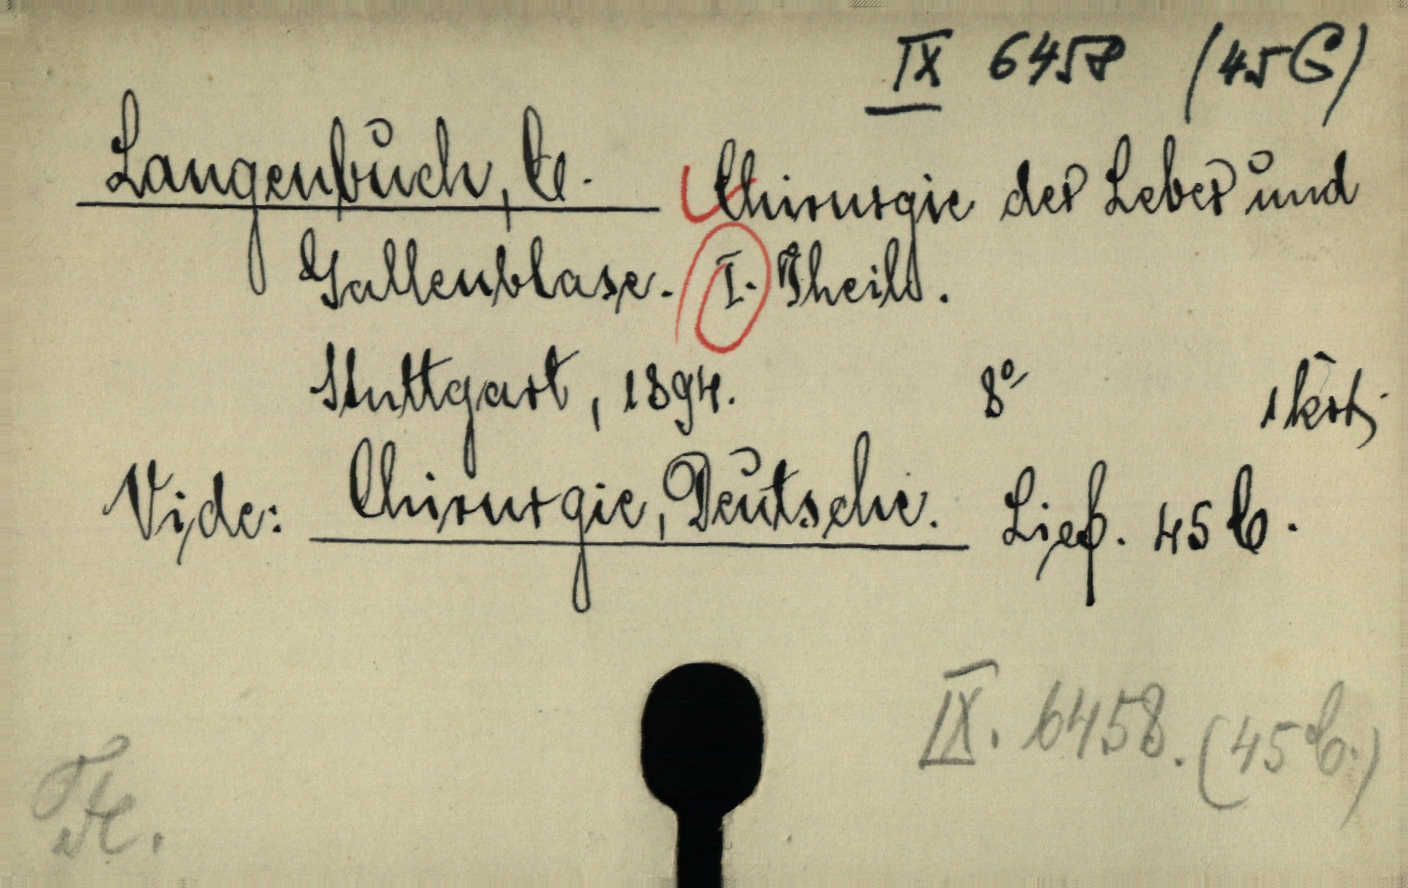 IX 6458 (45G)
Langenbuch, C. Chirurgie der Leber und
Gallenblase. I. Theil.
Stuttgart, 1894. 8º 1 köt.
Vide: Chirurgie, Deutsche. Lief. 45 C.
IX. 6458. (45 C.)